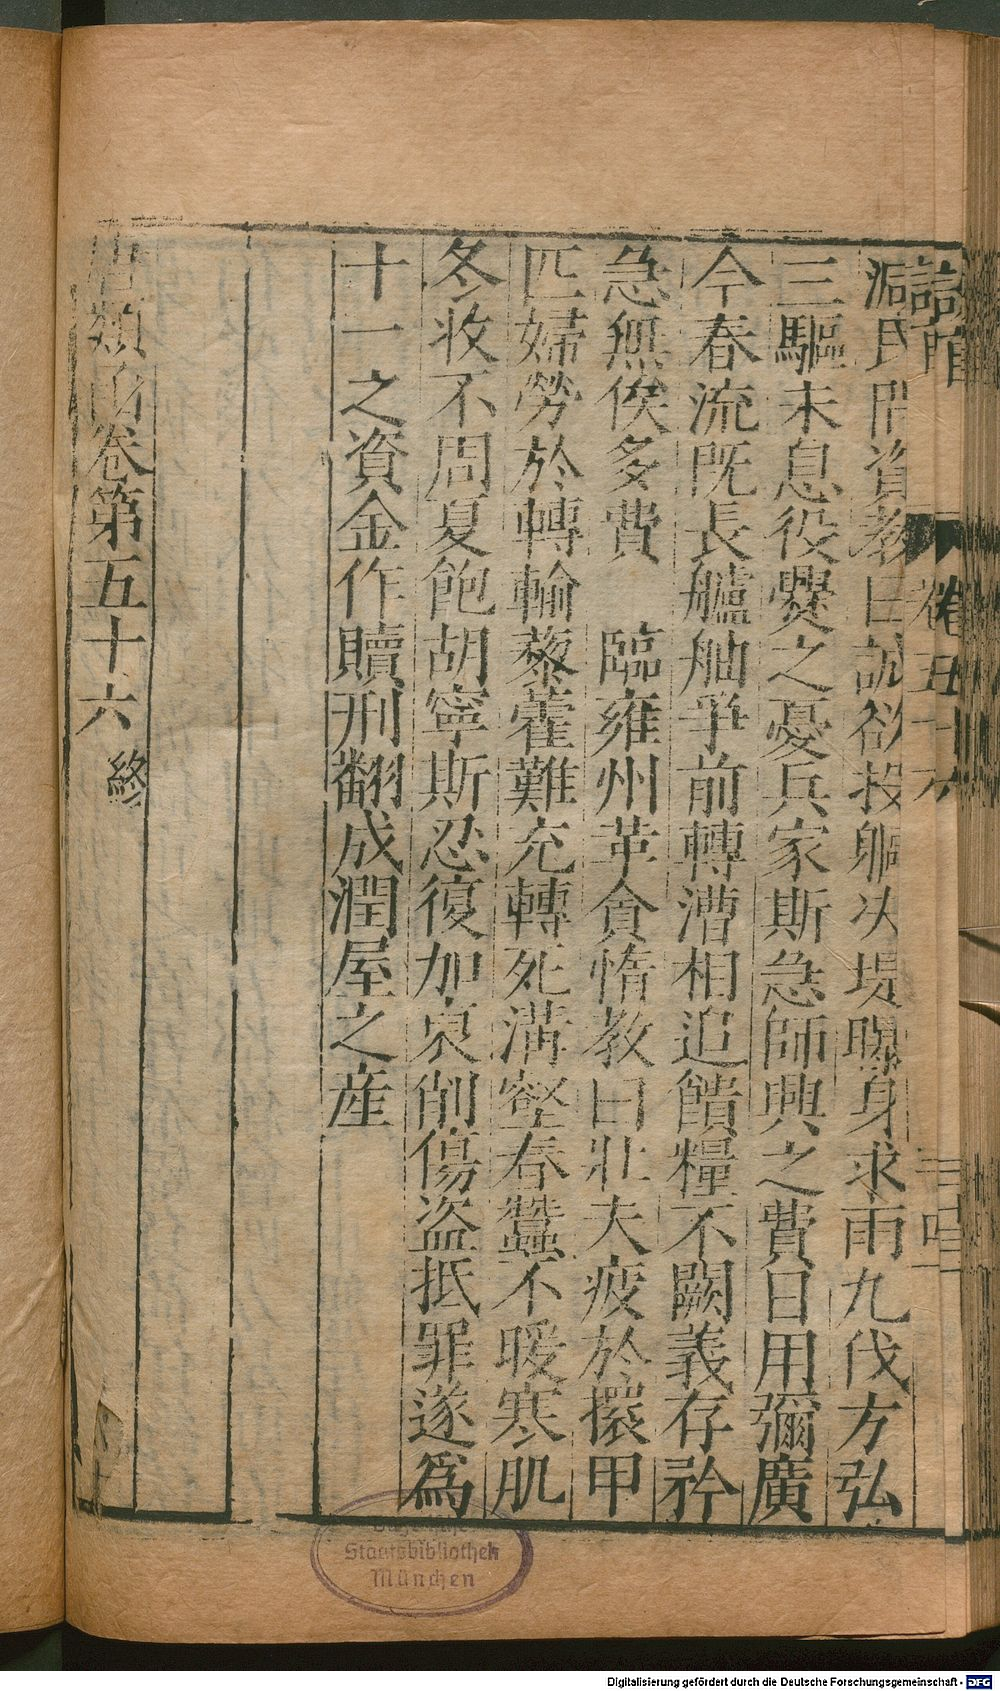 詰 卷五十六
減民間資教曰誠欲投軀决堤曝身求雨九伐方弘
三驅未息役爨之憂兵家斯急師興之費日用彌廣
今春流既長艫舳爭前轉漕相追饋糧不闕義存矜
急無俟多費 臨雍州革貪惰教曰壯夫疲於擐甲
匹婦勞於轉輸藜藿難充轉死溝壑春蠶不暖寒肌
冬收不周夏飽胡寧斯忍復加裒削傷盜抵罪遂爲
十一之資金作贖刑翻成潤屋之産
唐類函卷第五十六 終
Staatsbibliothek
München
Digitalisierung gefördert durch die Deutsche Forschungsgemeinschaft - DFG